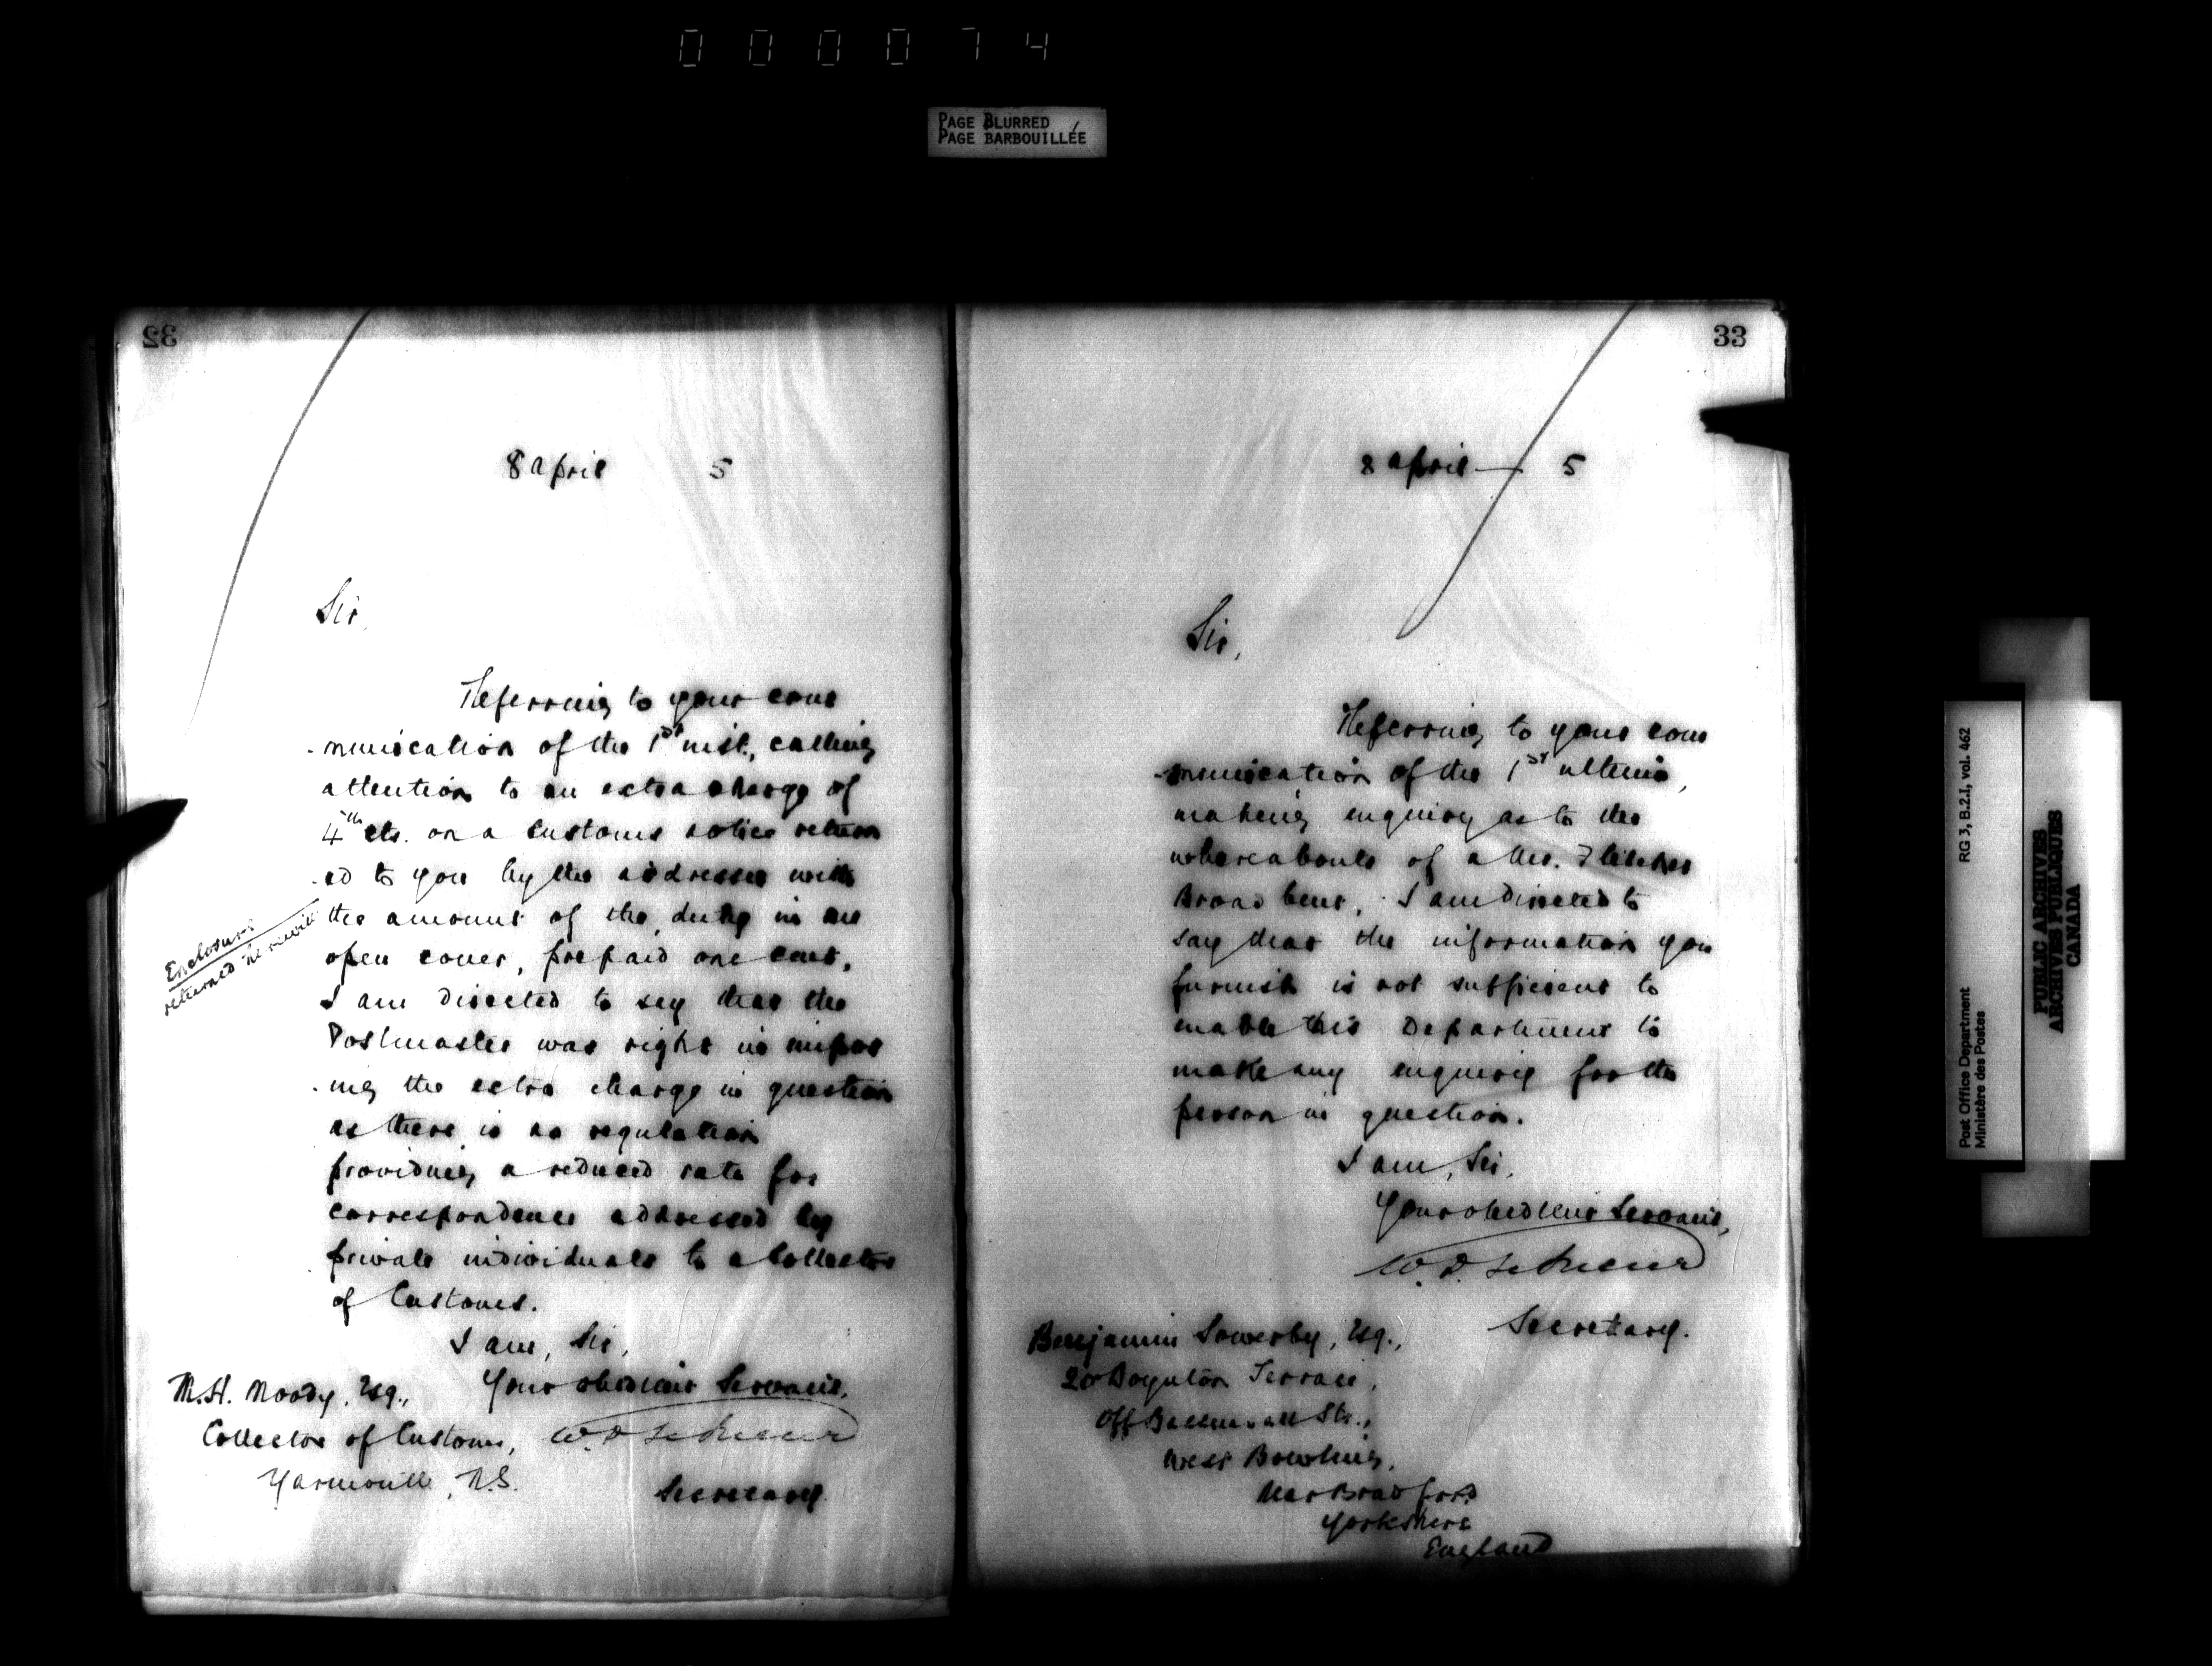 000074
PAGE BLURRED
PAGE BARBOUILLÉE
32
8 April 5
Sir,
Referring to your com
-munication of the 1st inst., calling
attention to an extra charge of
4 cts. on a Customs notice return
-ed to you by the addressee with
the amount of the duty in an
open cover, prepaid one cent,
I am directed to say that the
Postmaster was right in impos
-ing the extra charge in question
as there is no regulation
providing a reduced rate for
correspondence addressed by
private individuals to a Collector
of Customs.
I am, Sir,
Your obedient Servant,
Secretary.
Enclosure
returned herewith
M.H. Moody, Esq.,
Collector of Customs,
Yarmouth, N.S.
33
8 April — 5
Sir,
Referring to your com
-munication of the 1st ultimo,
making enquiry as to the
whereabouts of a Mr. Fletcher
Broadbent, I am directed to
say that the information you
furnish is not sufficient to
enable this Department to
make any enquiry for the
person in question.
I am, Sir,
Your obedient Servant,
Secretary.
Benjamin Sowerby, Esq.,
20 Boynton Terrace,
Off St.,
West Bowling,
Near Bradford
Yorkshire
England
RG 3, B.2.I, vol. 462
Post Office Department
Ministère des Postes
PUBLIC ARCHIVES
ARCHIVES PUBLIQUES
CANADA